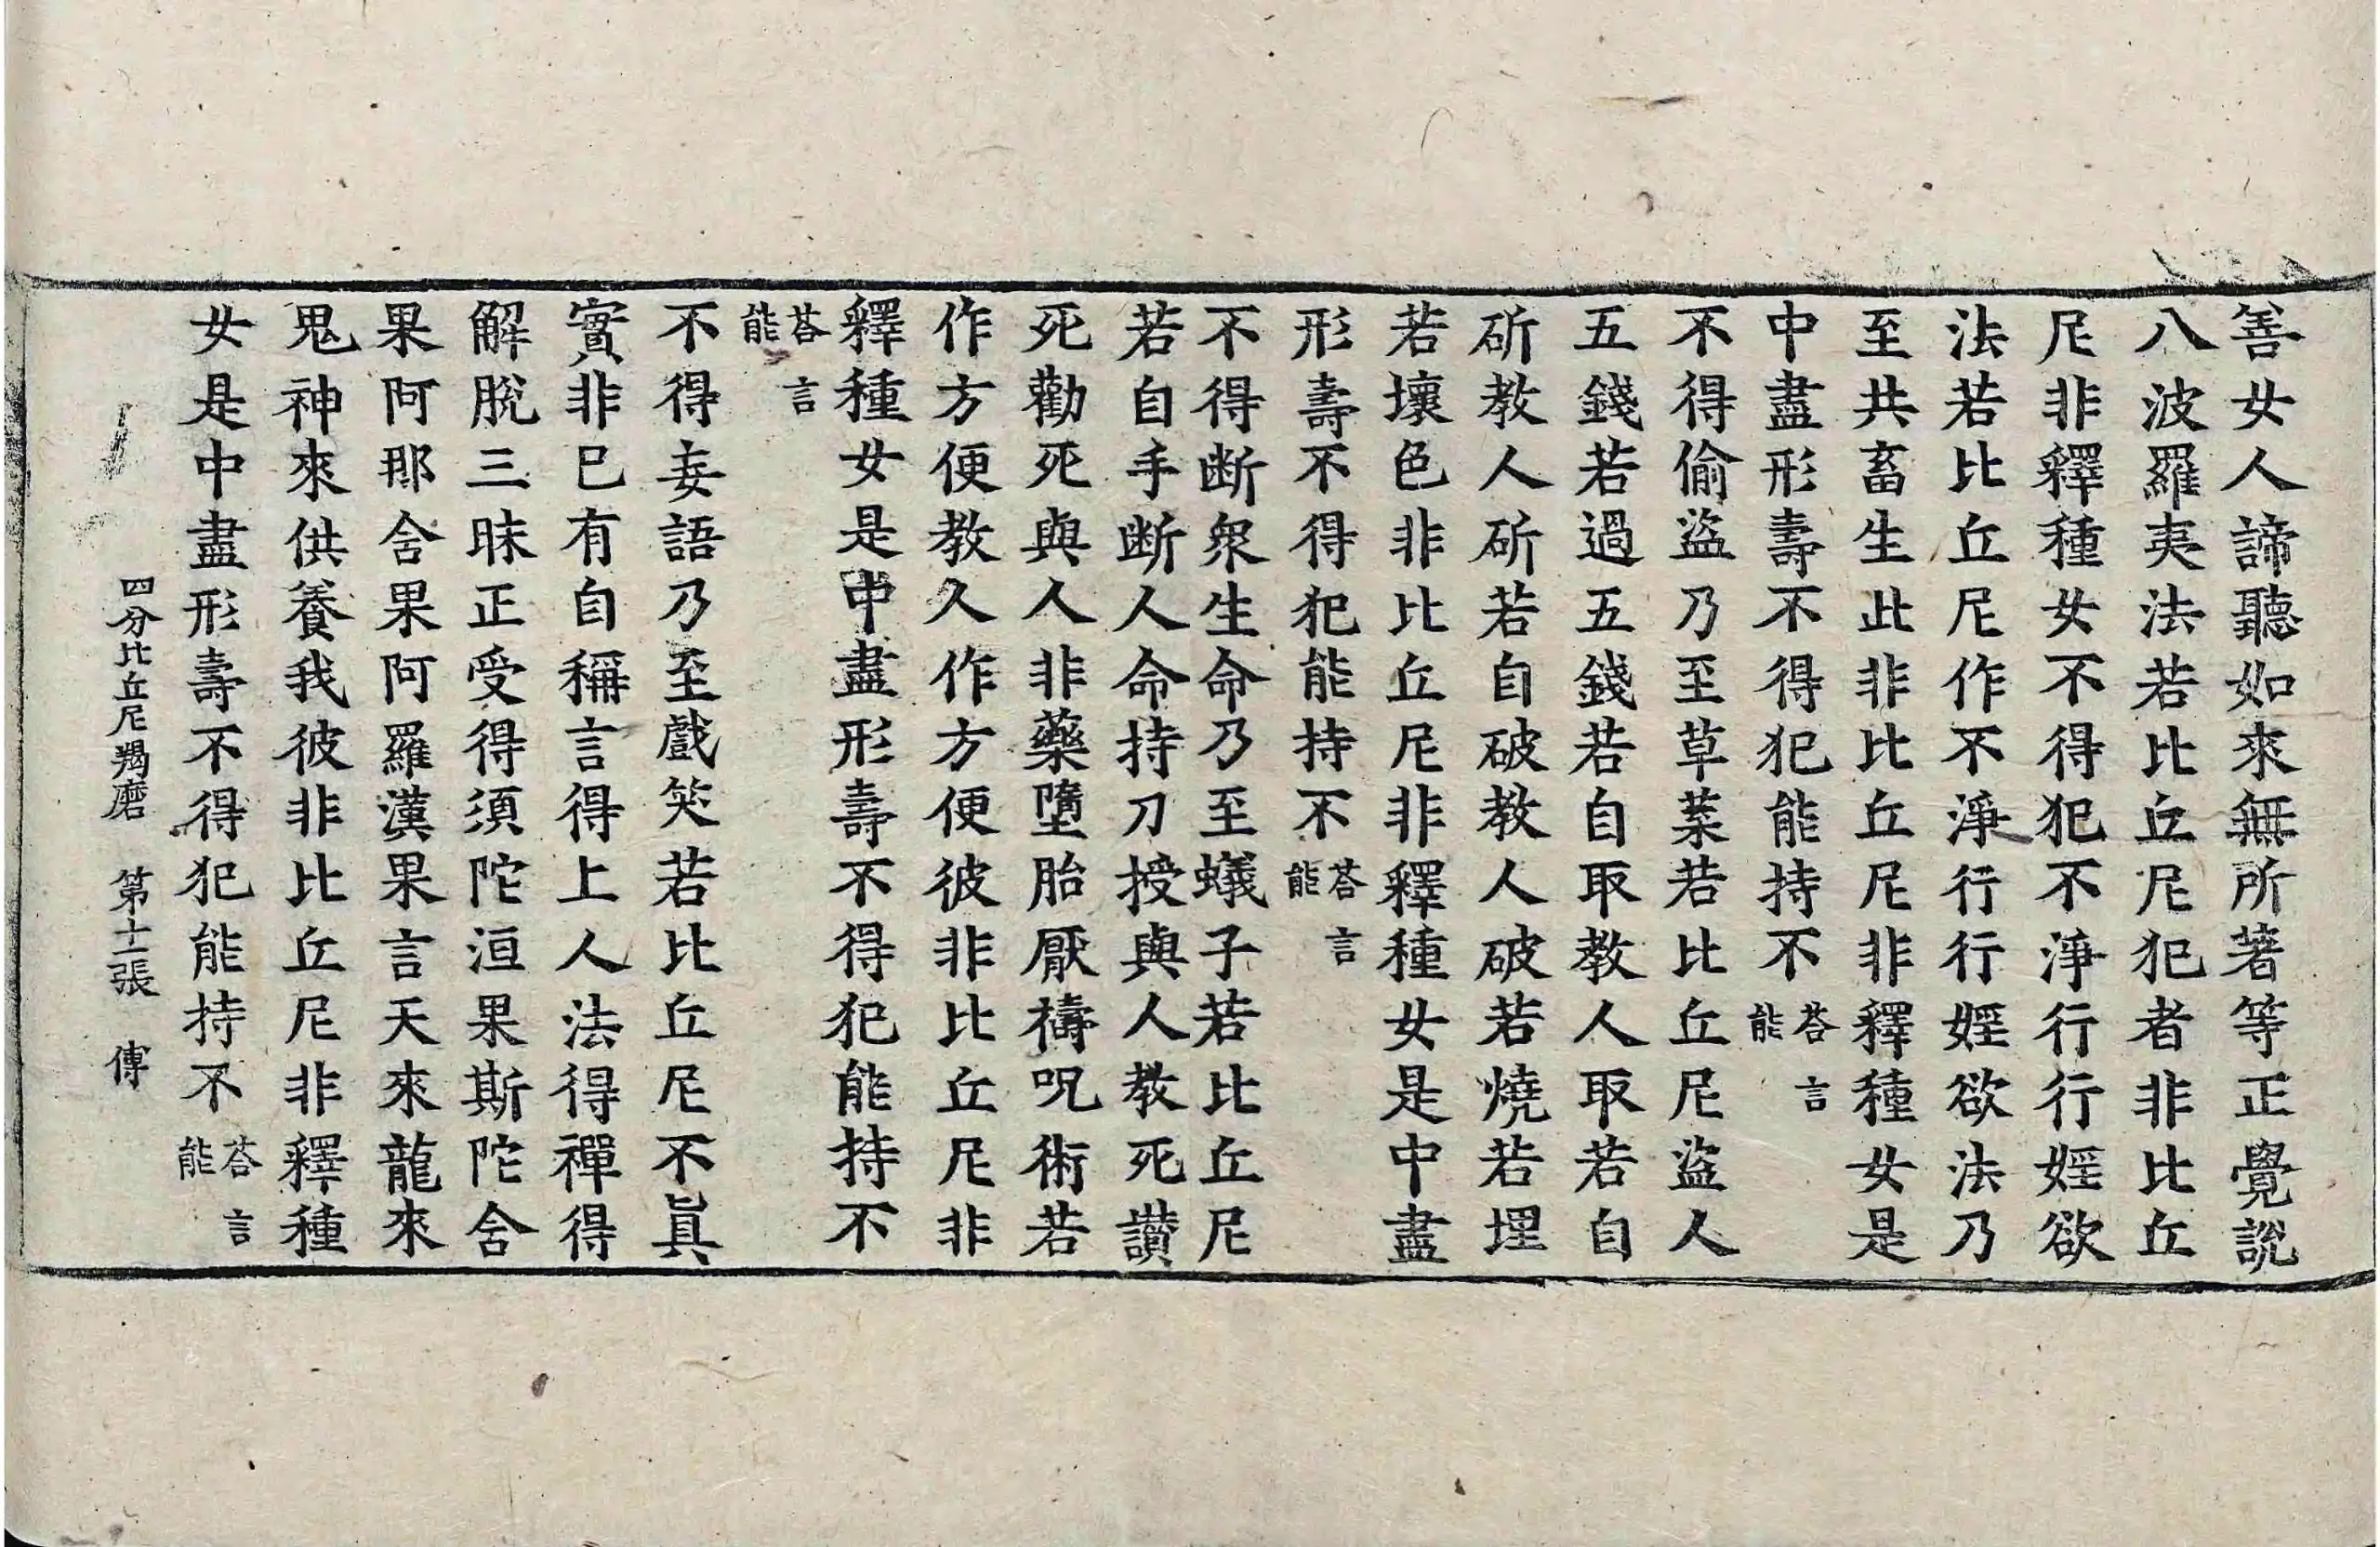 善女人諦聽如來無所著等正覺說
八波羅夷法若比丘尼犯者非比丘
尼非釋種女不得犯不淨行行婬欲
法若比丘尼作不淨行行婬欲法乃
至共畜生此非比丘尼非釋種女是
中盡形壽不得犯能持不荅言能
不得偷盜乃至草菜若比丘尼盜人
五錢若過五錢若自取教人取若自
斫教人斫若自破教人破若燒若埋
若壞色非比丘尼非釋種女是中盡
形壽不得犯能持不荅言能
不得断衆生命乃至蟻子若比丘尼
若自手断人命持刀授與人教死讃
死勸死與人非藥墮胎厭禱呪術若
作方便教久作方便彼非比丘尼非
釋種女是中盡形壽不得犯能持不
荅言能
不得妄語乃至戲笑若比丘尼不眞
實非巳有自稱言得上人法得禪得
解脫三昧正受得須陀洹果斯陀舍
果阿那舍果阿羅漢果言天來龍來
鬼神來供養我彼非比丘尼非釋種
女是中盡形壽不得犯能持不荅言能
四分比丘尼羯磨 第十二張 傳